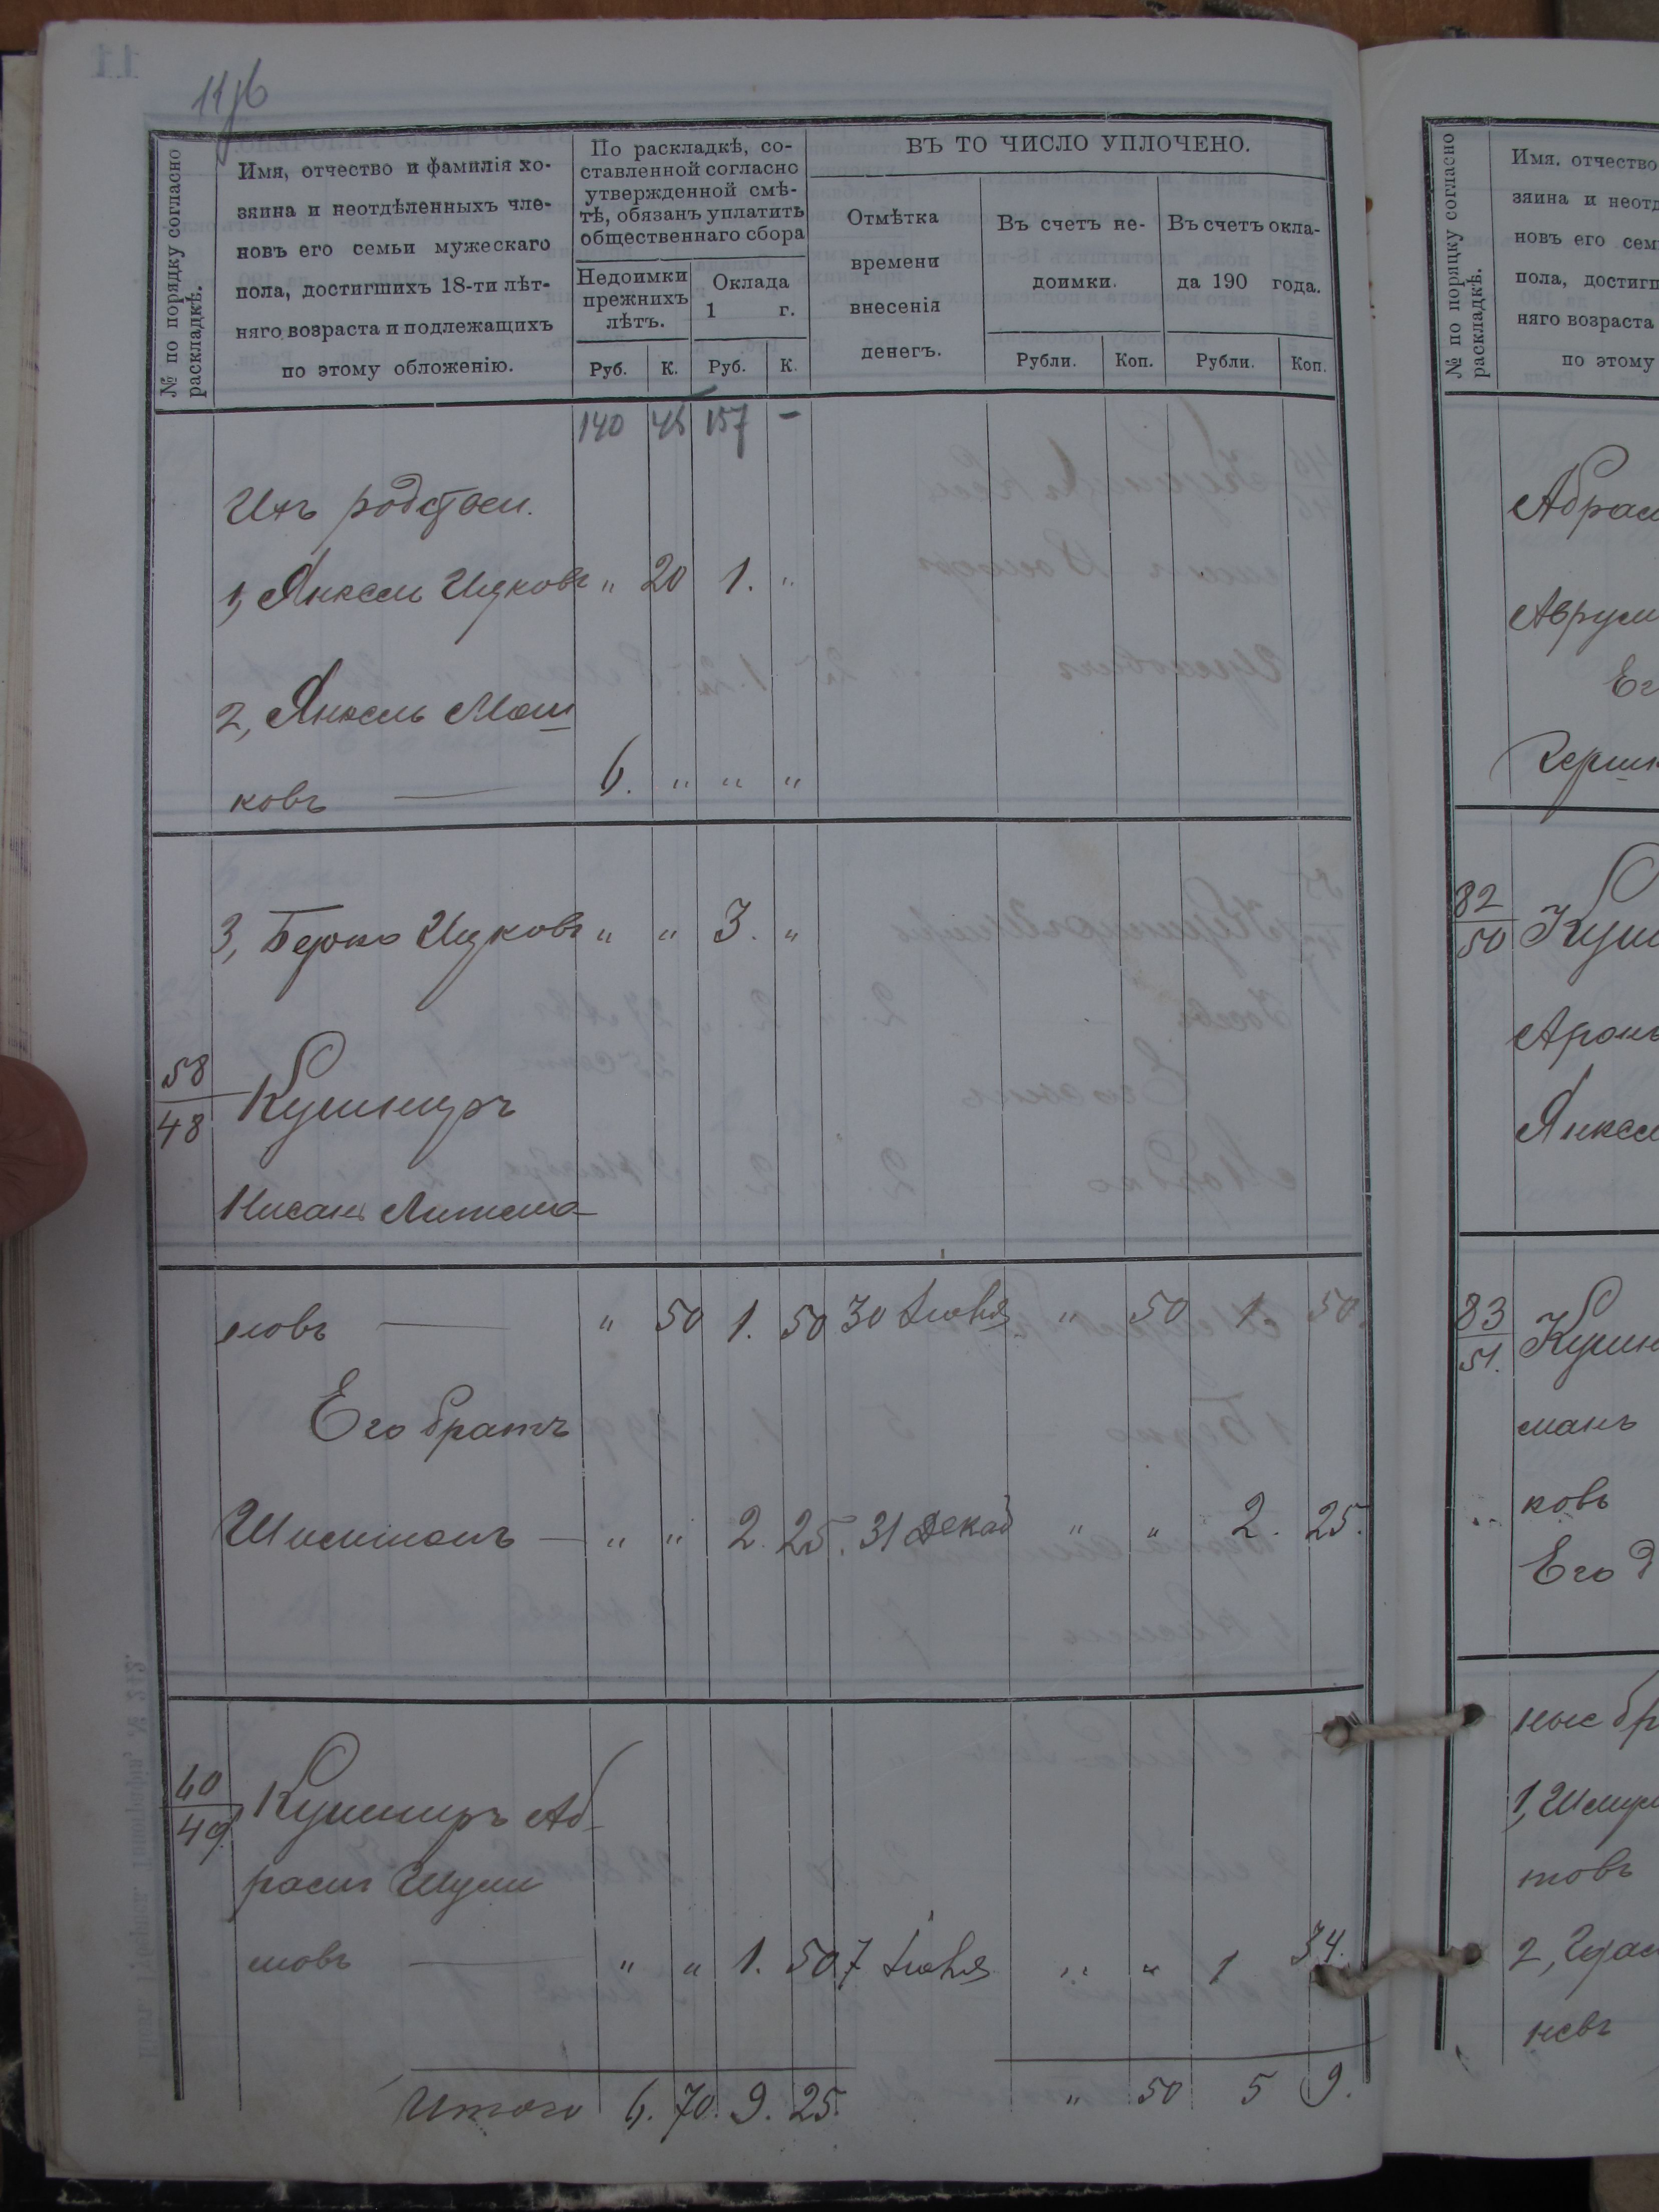 11
№ по порядку согласно раскладкѣ.
Имя, отчество и фамилія хо-
зяина и неотдѣленныхъ чле-
новъ его семьи мужескаго
пола, достигшихъ 18-ти лѣт-
няго возраста и подлежащихъ
по этому обложенію.
По раскладкѣ, со-
ставленной согласно
утвержденной смѣ-
тѣ, обязанъ уплатить
общественнаго сбора
Недоимки
прежнихъ
лѣтъ.
Оклада
1 г.
Руб. К. Руб. К.
ВЪ ТО ЧИСЛО УПЛОЧЕНО.
Отмѣтка
времени
внесенія
денегъ.
Въ счетъ не-
доимки.
Въ счетъ окла-
да 190 года.
Рубли. Коп. Рубли. Коп.
140 45 157 -
Ихъ родствен.
1, Янкель Ицковъ " 20 1. "
2, Янкель Мош
ковъ — 6. " " "
3, Берко Ицковъ " " 3. "
58
48
Кушниръ
Нисанъ Литма-
новъ — " 50 1. 50 30 Іюня " 50 1. 50.
Его братъ
— " " 2. 25. 31 Декаб " " 2. 25.
60
49
Кушниръ Аб-
рамъ Шули
мовъ — " " 1. 50 7 Іюня " " 1 34.
Итого 6. 70. 9. 25. " 50 5 9.
№ по порядку согласно раскладкѣ.
Имя, отчество
зяина и неотд
новъ его сем
пола, достигп
няго возраста
по этому
Абрам
Аврум
Ег
Гершк
82
50
Куш
Аронъ
Янкел
83
51.
Кушн
манъ
ковъ
Его д
ные бр
1, Шмул
товъ
2,
невъ